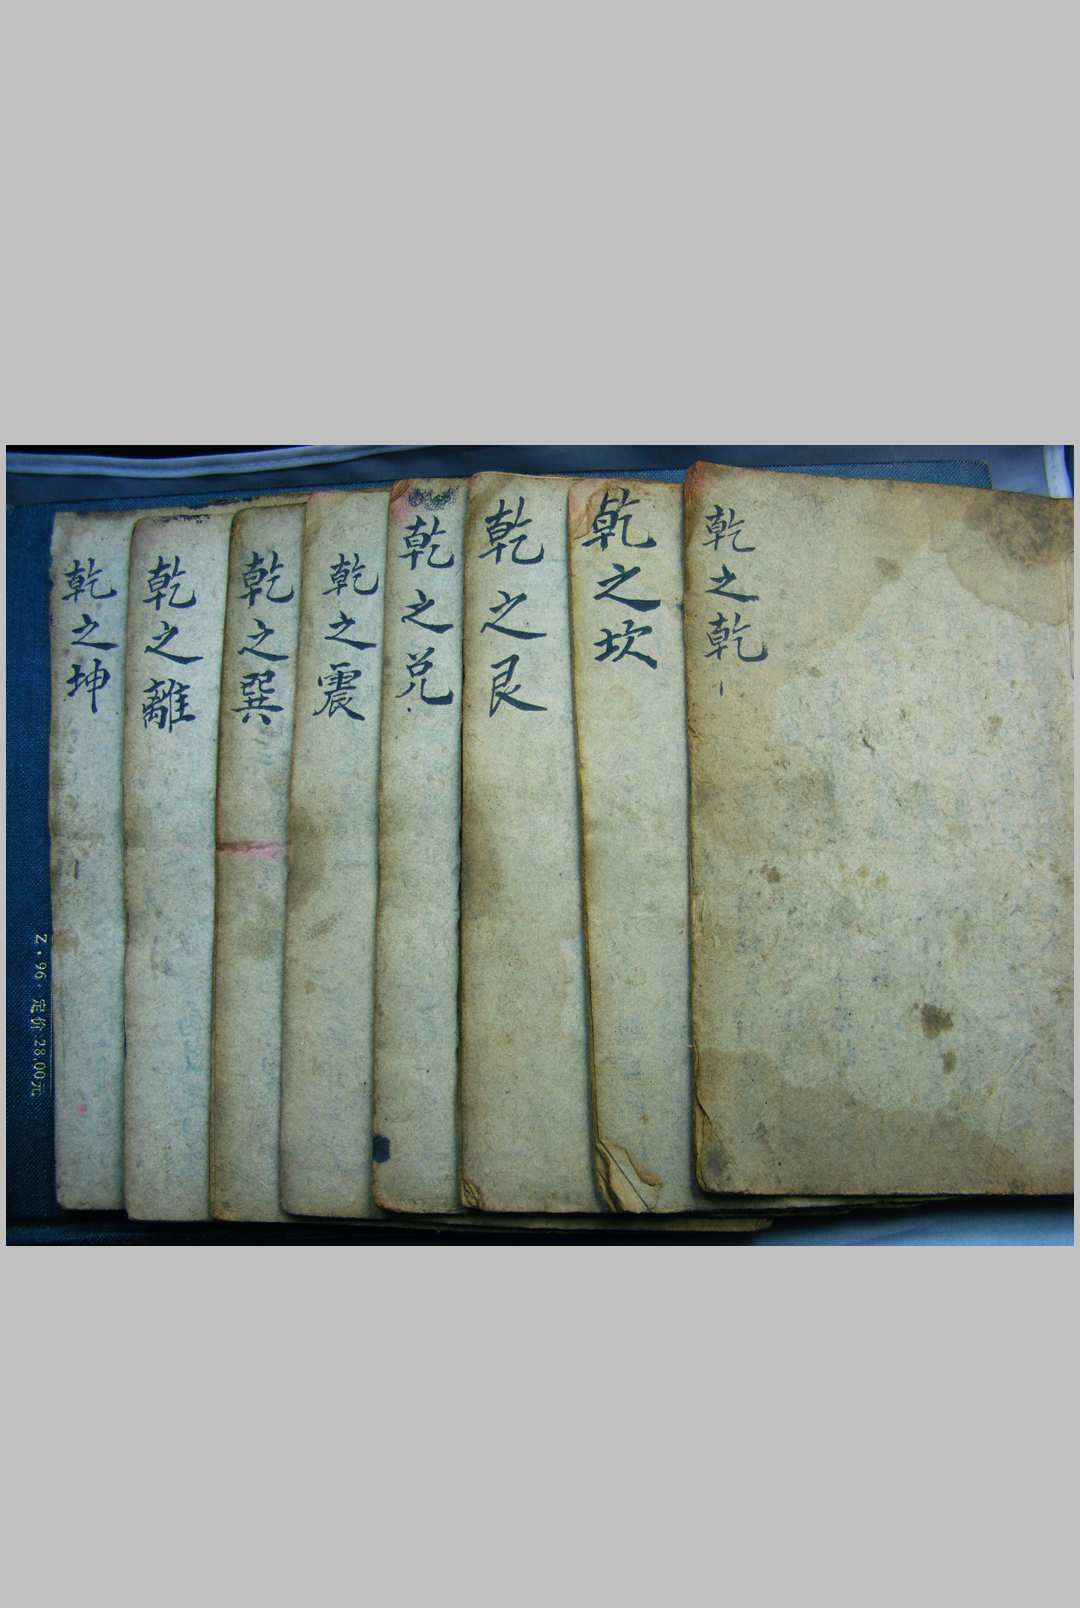 乾之乾
乾之坎
乾之艮
乾之兑
乾之震
乾之巽
乾之離
乾之坤
Z·96·定价:28.00元